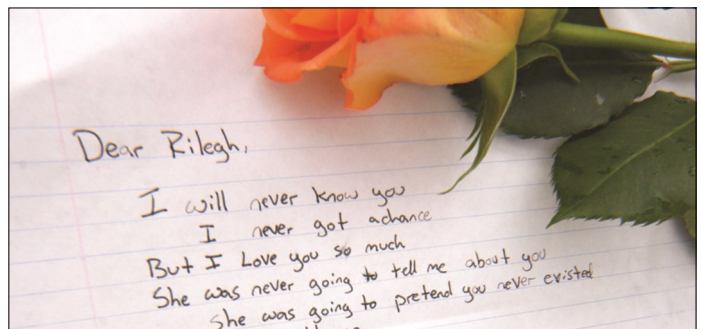 Dear Rilegh,
I will never know you
I never got a chance
But I Love you so much
She was never going to tell me about you
She was going to pretend you never existed